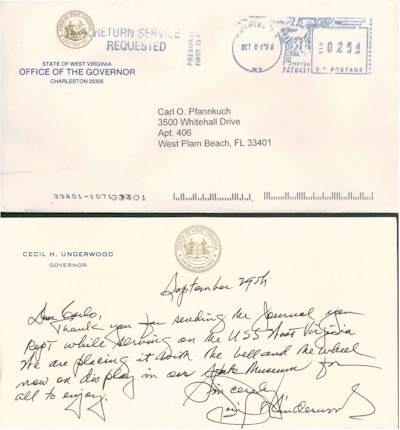 RETURN SERVICE
REQUESTED
STATE OF WEST VIRGINIA
OFFICE OF THE GOVERNOR
CHARLESTON 25305
PRESORTED
FIRST CLASS
OCT 01 '98
W.V.
METER
0254
U.S. POSTAGE
Carl O. Pfannkuch
3500 Whitehall Drive
Apt. 406
West Plam Beach, FL 33401
33401
CECIL H. UNDERWOOD
GOVERNOR
September 29th
Dear Carlo,
Thank you for sending the Journal you
kept while serving on the USS West Virginia
We are placing it with the bell and the wheel
now on display in our State Museum for
all to enjoy.
Sincerely
Underwood